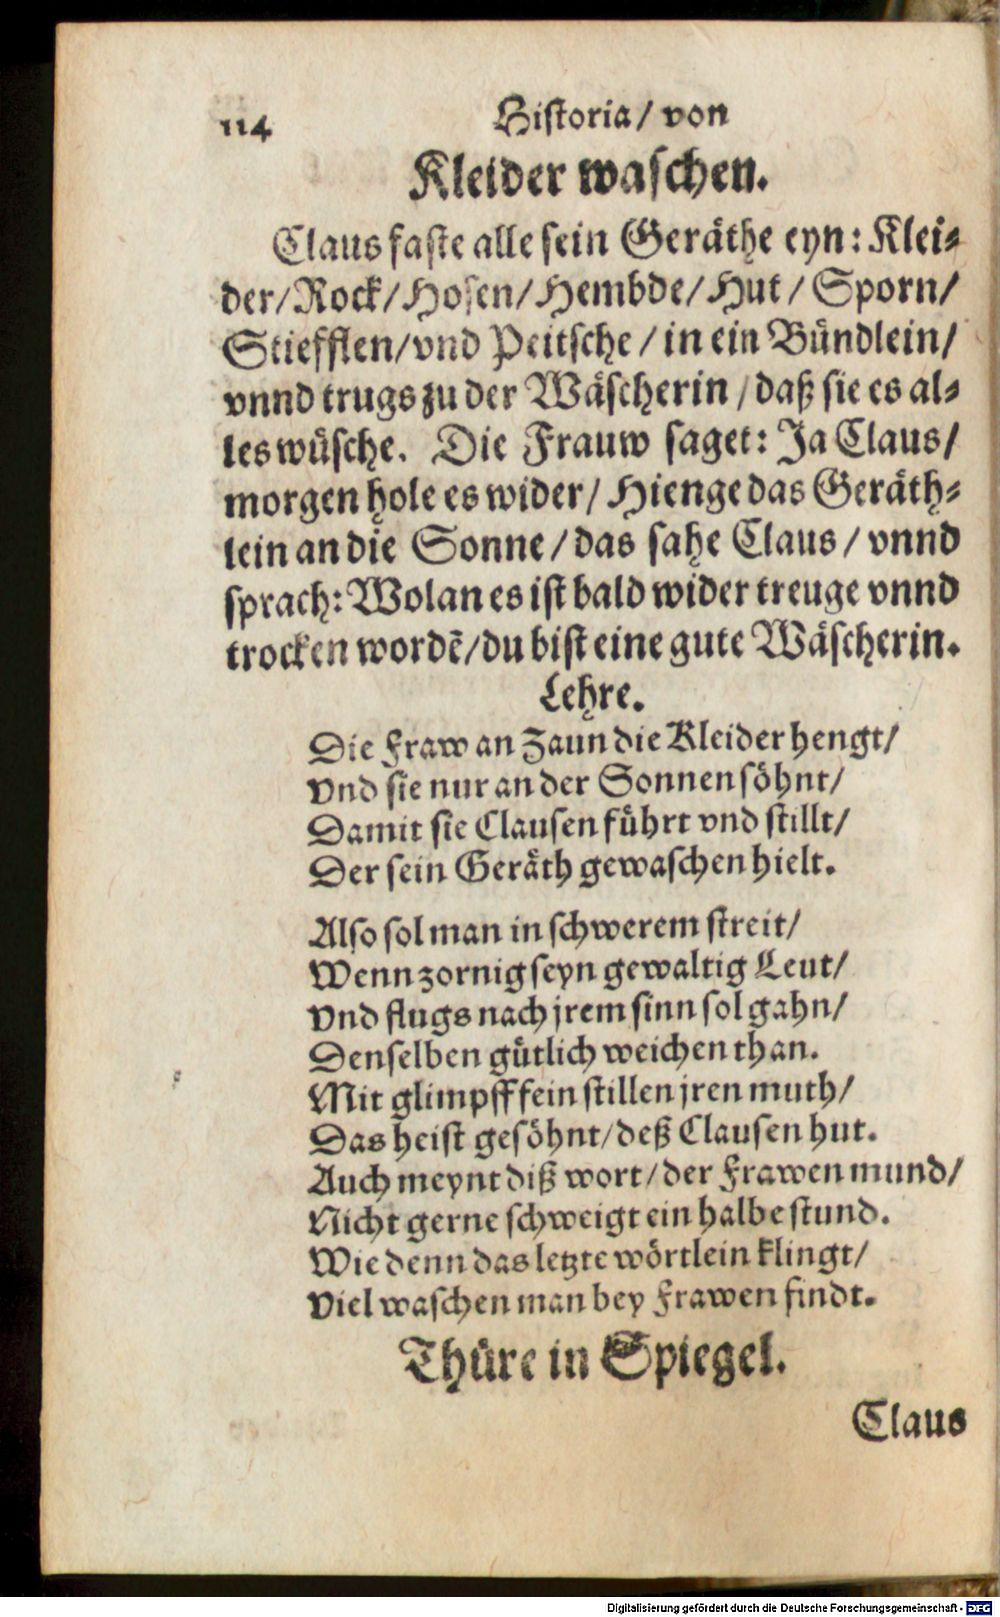 114 Historia/ von
Kleider waschen.
Claus faste alle sein Geräthe eyn: Klei-
der/Rock/Hosen/Hembde/Hut/ Sporn/
Stiefflen/vnd Peitsche/in ein Bündlein/
vnnd trugs zu der Wäscherin/daß sie es al-
les wüsche. Die Frauw saget: Ja Claus/
morgen hole es wider/Hienge das Geräth-
lein an die Sonne/das sahe Claus/vnnd
sprach: Wolan es ist bald wider treuge vnnd
trocken wordē/du bist eine gute Wäscherin.
Lehre.
Die Fraw an Zaun die Kleider hengt/
Vnd sie nur an der Sonnen söhnt/
Damit sie Clausen führt vnd stillt/
Der sein Geräth gewaschen hielt.
Also sol man in schwerem streit/
Wenn zornig seyn gewaltig Leut/
Vnd flugs nach jrem sinn sol gahn/
Denselben gütlich weichen than.
Mit glimpff fein stillen jren muth/
Das heist gesöhnt/deß Clausen hut.
Auch meynt diß wort/der Frawen mund/
Nicht gerne schweigt ein halbe stund.
Wie denn das letzte wörtlein klingt/
Viel waschen man bey Frawen findt.
Thüre in Spiegel.
Claus
Digitalisierung gefördert durch die Deutsche Forschungsgemeinschaft - DFG